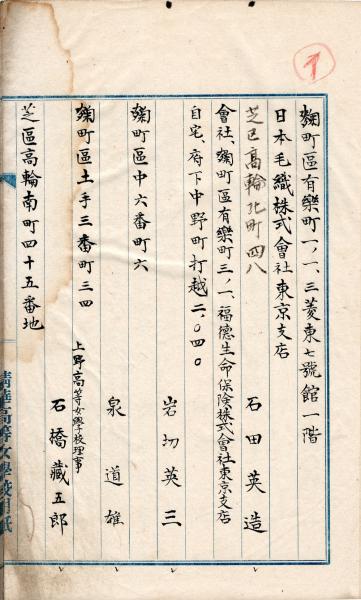 麹町區有樂町一ノ一、三菱東七號館一階
日本毛織株式會社東京支店
芝区高輪北町四八
石田英造
會社、麹町區有樂町三ノ一、福德生命保険株式會社東京支店
自宅、府下中野町打越二〇四〇
岩切英三
麹町區中六番町六
泉道雄
麹町區土手三番町三四
上野高等女學校理事
石橋藏五郎
芝區高輪南町四十五番地
精華高等女學校用紙